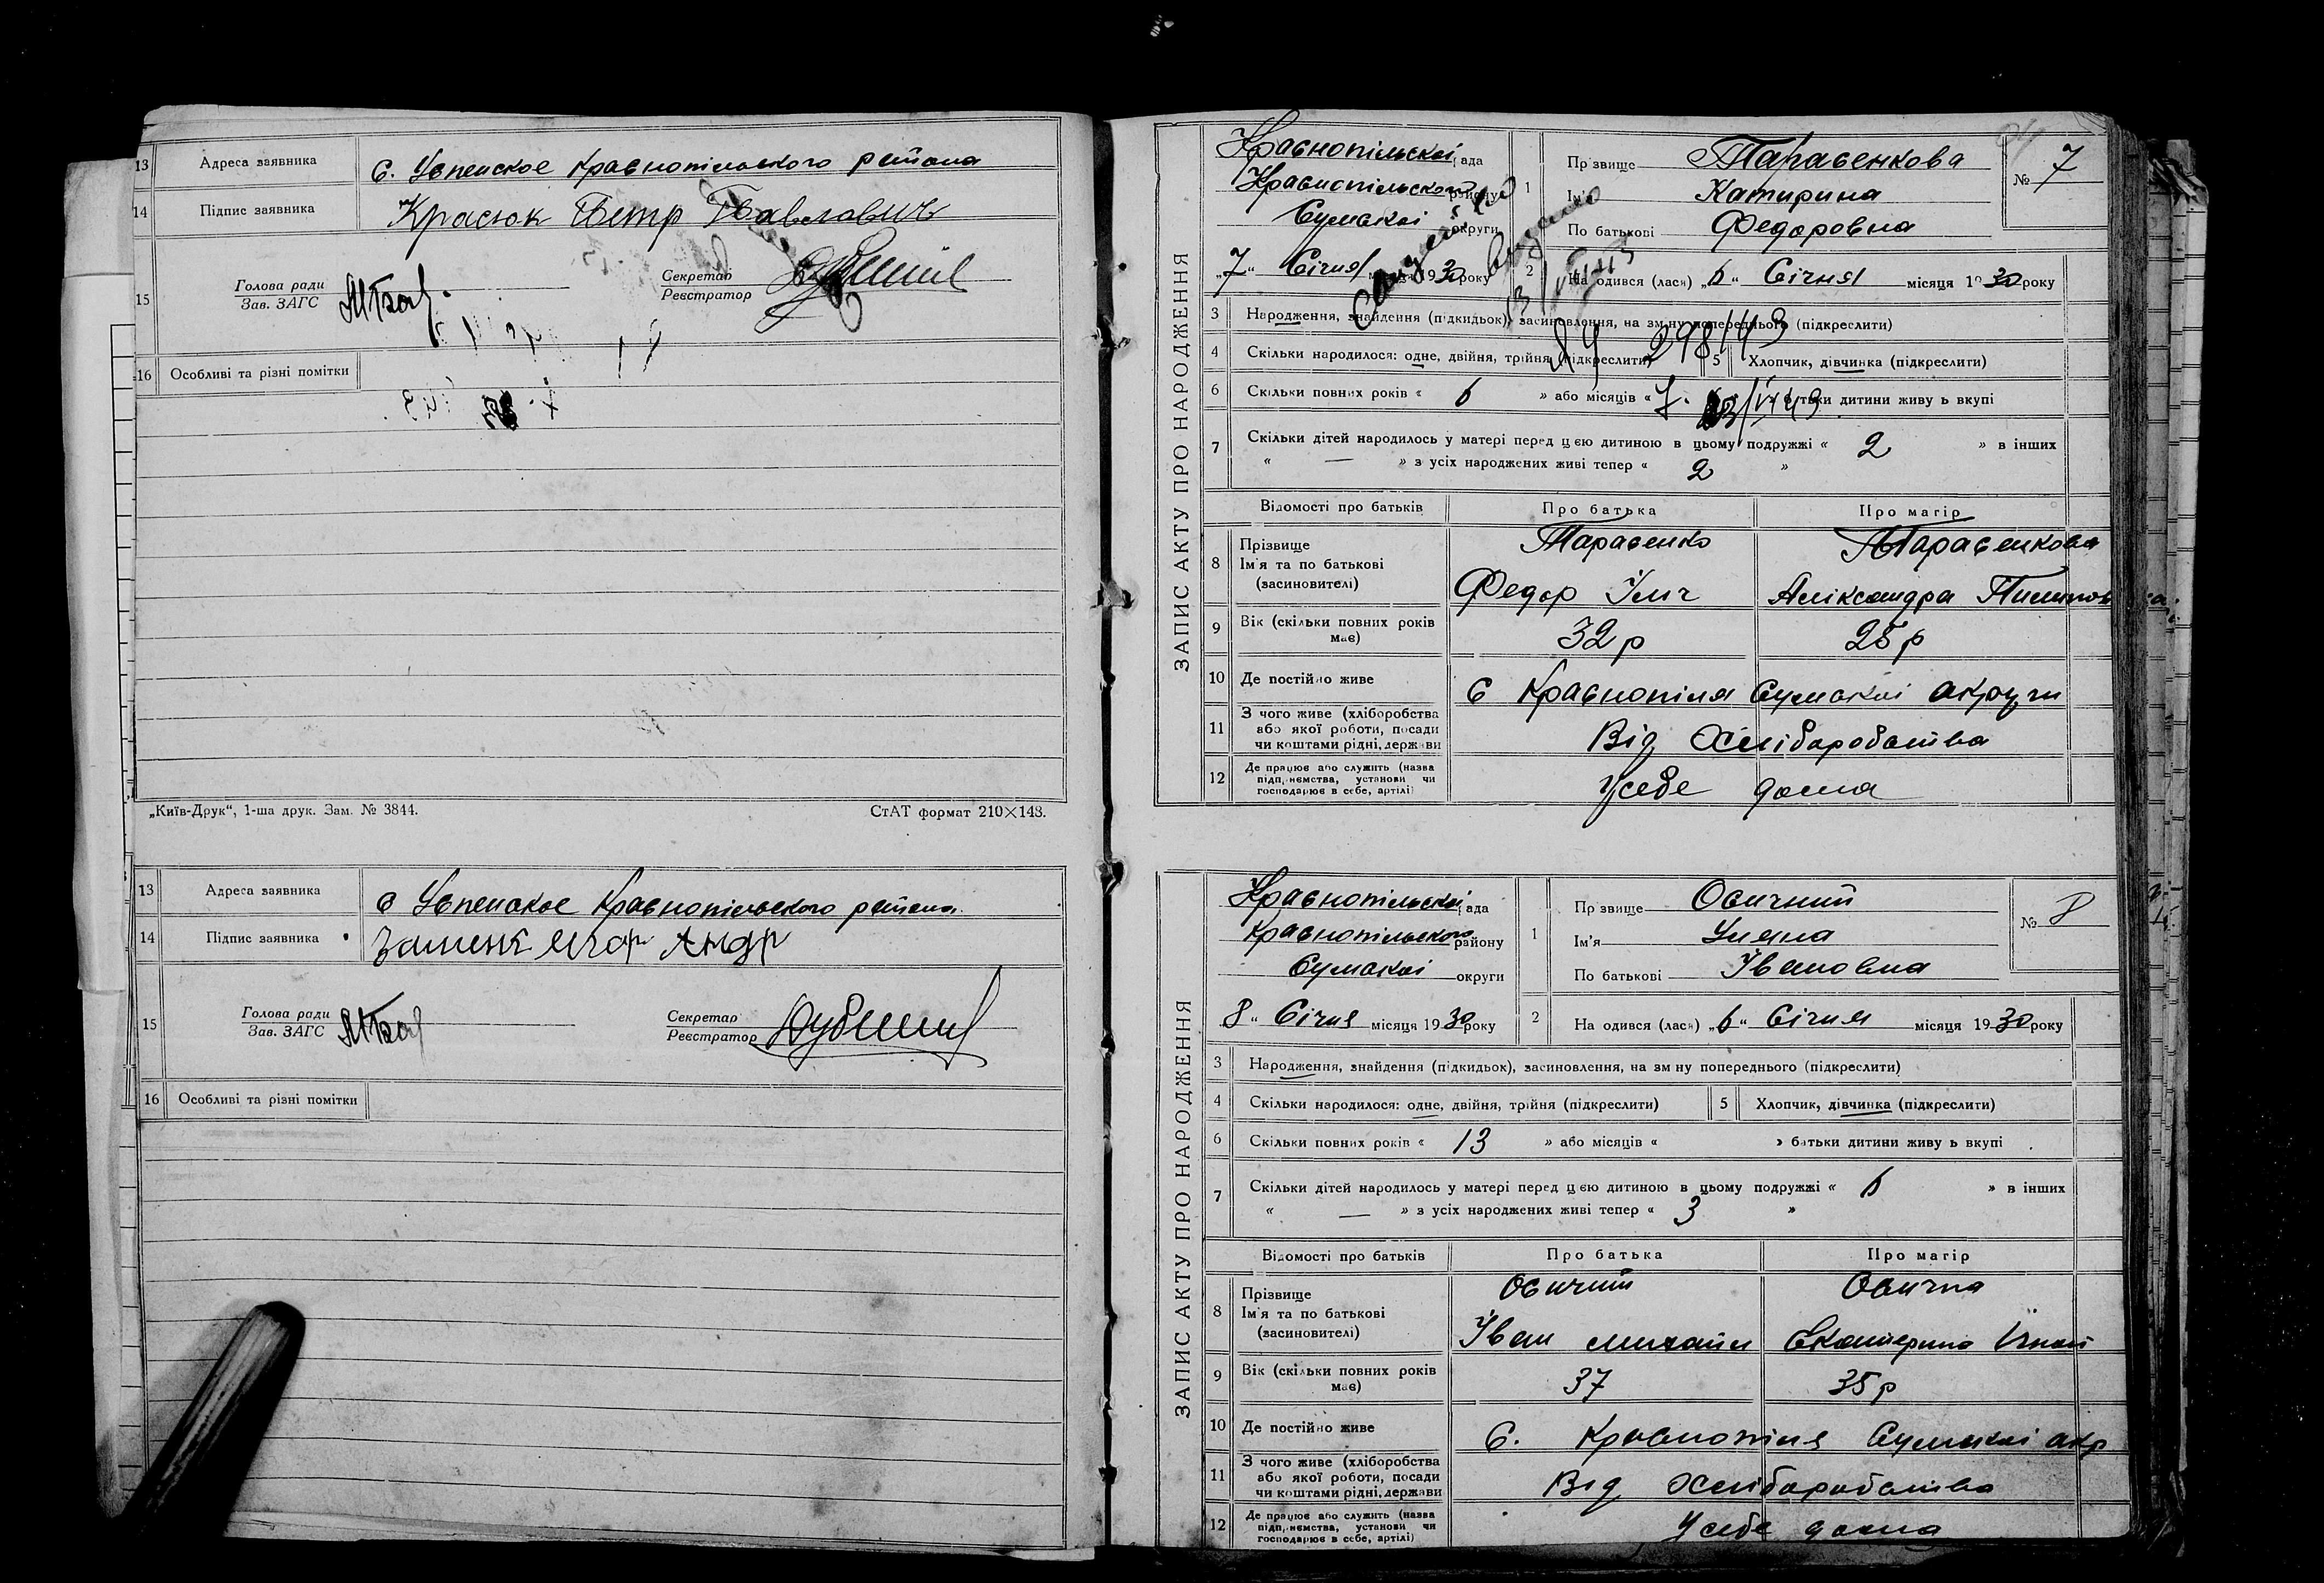 13 Адреса заявника с. Успенское Краснопільського района
14 Підпис заявника Красюк Петр Павлович
15 Голова ради
Зав. ЗАГС
Секретар
Реєстратор
16 Особливі та різні помітки
„Київ-Друк“, 1-ша друк. Зам. № 3844. СтАТ формат 210×148.
13 Адреса заявника с Успенское Краснопільського района
14 Підпис заявника
15 Голова ради
Зав. ЗАГС
Секретар
Реєстратор
16 Особливі та різні помітки
ЗАПИС АКТУ ПРО НАРОДЖЕННЯ
Краснопільскої ради
Краснопільского району
Сумскої округи
„7“ Січня 1930 року
1 Прізвище Тарасенкова
Ім'я Катирина
По батькові Федоровна
№ 7
2 На одився (лася) „6“ Січня місяця 1930 року
3 Народження, знайдення (підкидьок), засиновлення, на зм ну попереднього (підкреслити)
4 Скільки народилося: одне, двійня, трійня (підкреслити) 5 Хлопчик, дівчинка (підкреслити)
298/43
6 Скільки повних років « 6 » або місяців « батьки дитини живу ь вкупі
7 Скільки дітей народилось у матері перед цією дитиною в цьому подружжі « 2 » в інших
« — » з усіх народжених живі тепер « 2 »
Відомості про батьків Про батька Про матір
8 Прізвище
Ім'я та по батькові
(засиновителі)
Тарасенко Тарасенкова
Федор Ілич Аліксандра Пилипов
9 Вік (скільки повних років має) 32 р 25 р
10 Де постійно живе с Краснопілля Сумскої акруги
11 З чого живе (хліборобства
або якої роботи, посади
чи коштами рідні, держави
Від Хліборобства
12 Де працює або служить (назва
підп, иємства, установи чи
господарює в себе, артілі)
У себе дома
ЗАПИС АКТУ ПРО НАРОДЖЕННЯ
Краснопільскої ради
Краснопільского району
Сумскої округи
„8“ Січня місяця 1930 року
1 Прізвище Осичний
Ім'я Уляна
По батькові Івановна
№ 8
2 На одився (лася) „6“ Січня місяця 1930 року
3 Народження, знайдення (підкидьок), засиновлення, на зм ну попереднього (підкреслити)
4 Скільки народилося: одне, двійня, трійня (підкреслити) 5 Хлопчик, дівчинка (підкреслити)
6 Скільки повних років « 13 » або місяців « » батьки дитини живу ь вкупі
7 Скільки дітей народилось у матері перед цією дитиною в цьому подружжі « 6 » в інших
« — » з усіх народжених живі тепер « 3 »
Відомості про батьків Про батька Про матір
8 Прізвище
Ім'я та по батькові
(засиновителі)
Осичний Осична
Іван Михайл Екатерина Ігнат
9 Вік (скільки повних років має) 37 35 р
10 Де постійно живе с. Краснопілля Сумскої акр
11 З чого живе (хліборобства
або якої роботи, посади
чи коштами рідні, держави
Від Хліборобства
12 Де працює або служить (назва
підп, иємства, установи чи
господарює в себе, артілі)
У себе дома